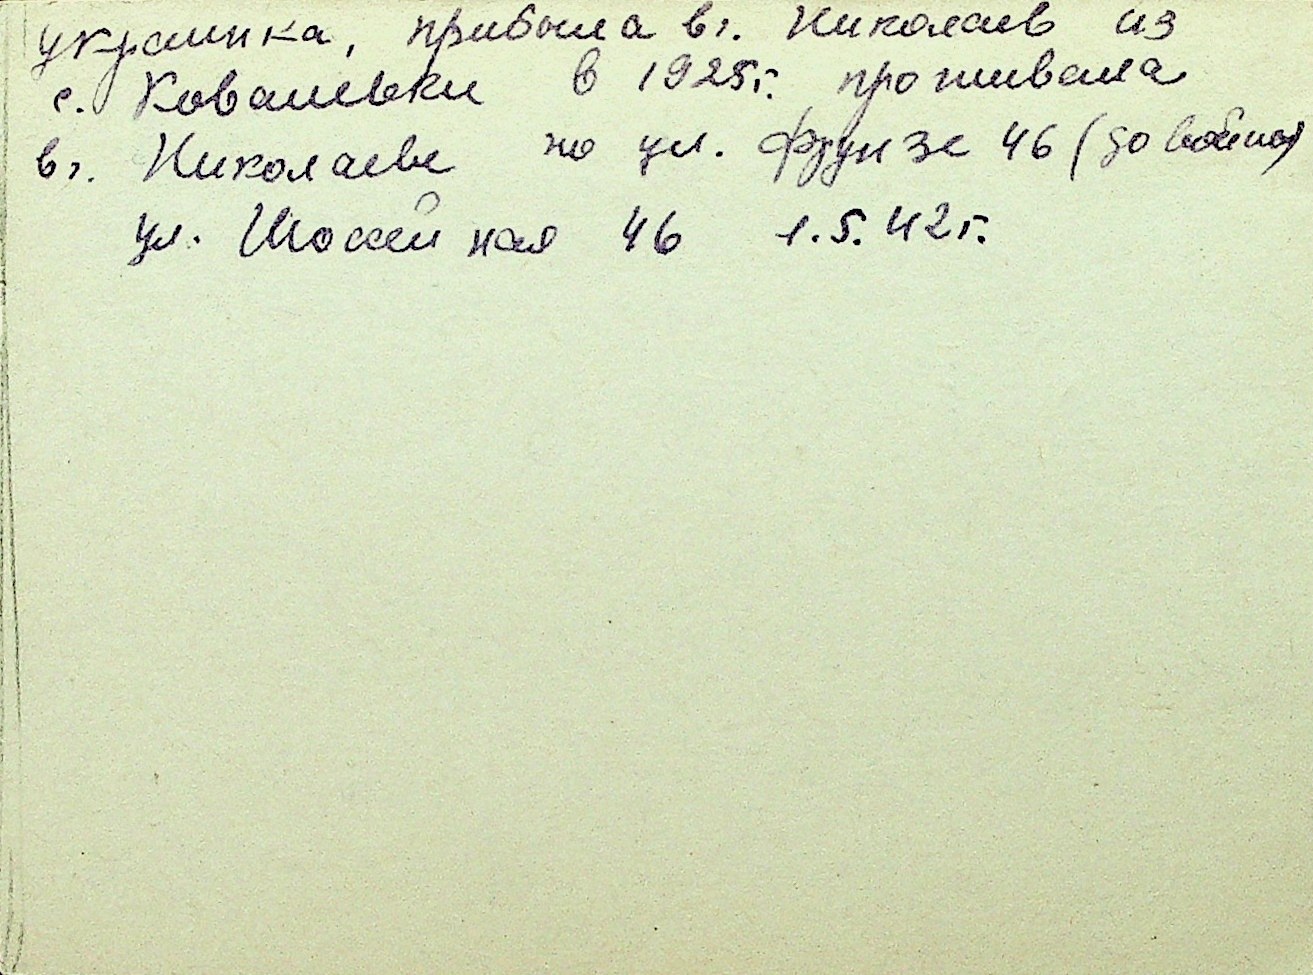 украинка, прибыла в г. Николаев из
с. Ковалевки в 1925г. проживала
в г. Николаеве по ул. Фрунзе 46 (до войны)
ул. Шоссейная 46 1.5.42г.